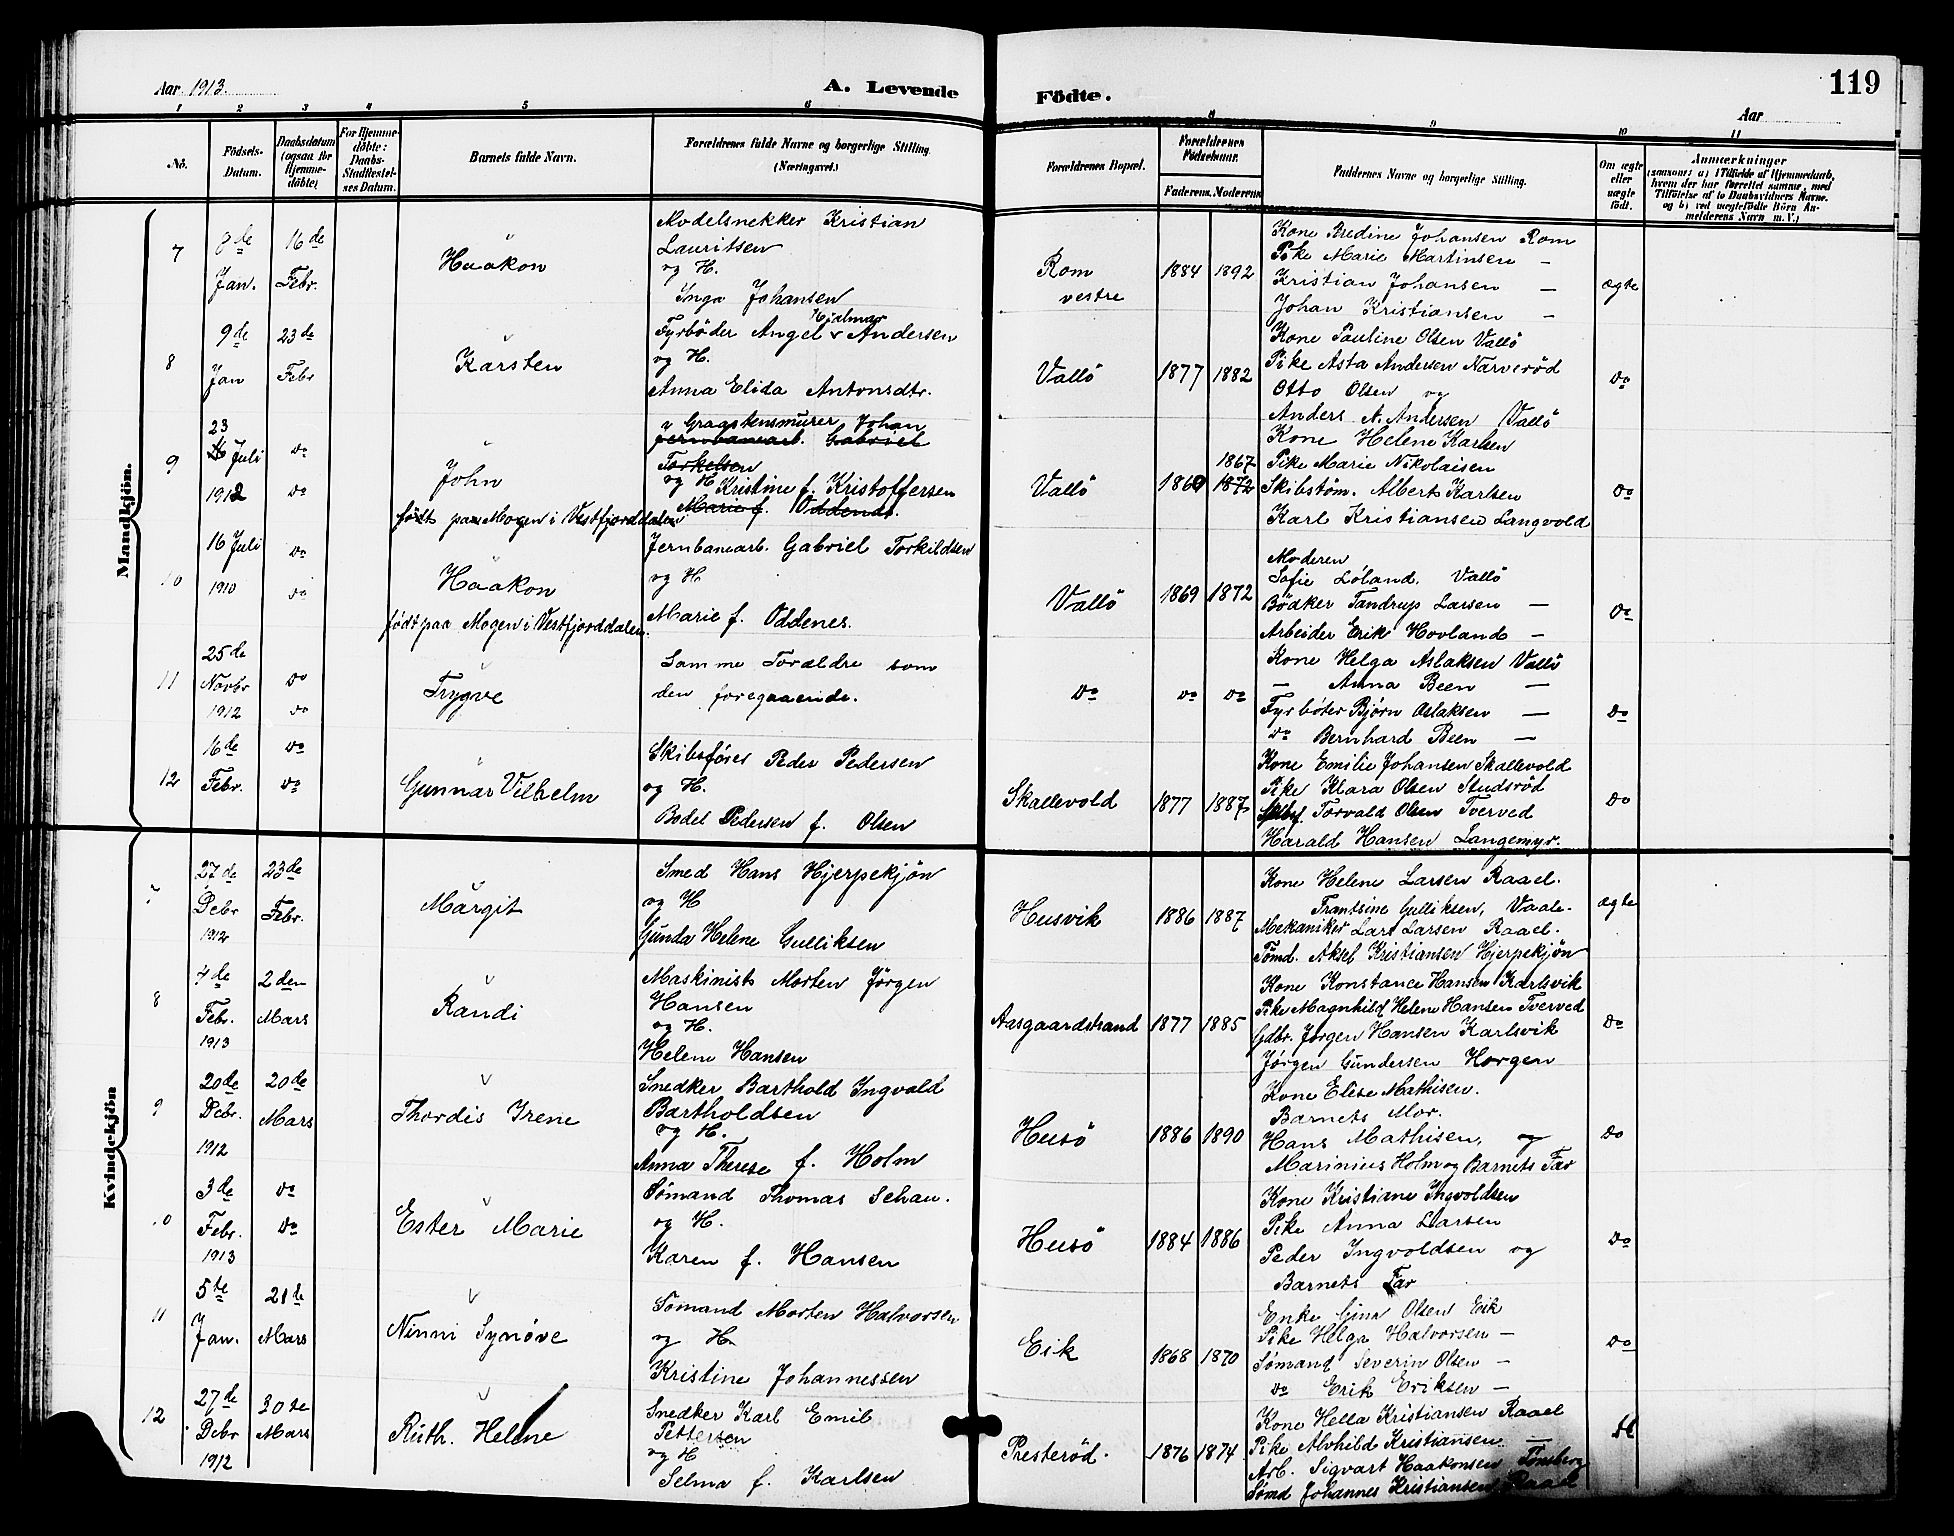 Aar 1913.
A. Levende Födte.
Aar
119
1 2 3 4 5 6 8 9 10 11
No.
Födsels-Datum.
Daabsdatum (ogsaa for Hjemme-döbte)
For Hjemme-döbte: Daabs-Stadfæstel-ses Datum.
Barnets fulde Navn.
Forældrenes fulde Navne og borgerlige Stilling. (Næringsvei.)
Forældrenes Bopæl.
Forældrenes Födselsaar.
Faderens. Moderens
Faddernes Navne og borgerlige Stilling.
Om ægte eller uægte födt.
Anmærkninger
(saasom: a) i Tilfælde af Hjemmedaab,
hvem der har forrettet samme, med
Tilföielse af to Daabsvidners Navne.
og b) ved uægtefödte Börn An-
melderens Navn m. V.)
Mandkjön.
7
8de Jan.
16de Febr.
Haakon
Modelsnekker Kristian
Lauritsen
og H.
Inga Johansen
Rom vestre
1884 1892
Kone Bredine Johansen Rom
Pike Marie Martinsen —
Kristian Johansen —
Johan Kristiansen —
ægte
8
9de Jan
23de Febr
Karsten
Hjalmar
Fyrbøder Angel v Andersen
og H.
Anna Elida Antonsdtr.
Vallö
1877 1882
Kone Pauline Olsen Vallö
Pike Asta Andersen Narverød
Otto Olsen og
Anders A. Andersen Vallö
do
9
23
Juli
1912
do
do
John
født paa Mogen i Vestfjorddalen
v Graastensmurer Johan
Jernbanearb. Gabriel
Torkelsen
og H Kristine f. Kristoffersen
Marie f. Oddenes.
Vallö
1867
1872
Kone Helene Karlsen
Pike Marie Nikolaisen
Skibstøm. Albert Karlsen
Karl Kristiansen Langvold
do
10
16 Juli
1910
do
do
Haakon
født paa Mogen i Vestfjorddalen.
Jernbanearb. Gabriel Torkildsen
og H
Marie f. Oddenes.
Vallö
1869 1872
Moderen
Sofie Løland. Vallö
Bödker Tandrup Larsen —
Arbeider Erik Hovland —
do
11
25de
Novbr
1912
do
do
Trygve
Samme Foraeldre som
den foregaaende.
do
do do
Kone Helga Aslaksen Vallö
— Anna Been —
Fyrbøter Bjørn Oslaksen —
do Bernhard Been —
do
12
16de
Febr.
do
do
Gunnar Vilhelm
Skibsfører Peder Pedersen
og H.
Bodel Pedersen f. Olsen
Skallevold
1877 1887
Kone Emilie Johansen Skallevold
Pike Klara Olsen Studsrød
Torvald Olsen Tverved
Harald Hansen Langemyr.
do
Kvindekjön
7
27de
Debr
1912
23de
Febr.
Margit
Smed Hans Hjerpekjøn
og H
Gunda Helene Gulliksen
Husvik
1886 1887
Kone Helene Larsen Raael.
Frantsine Gulliksen, Vaale.
Mekaniker Lars Larsen Raael.
Tømd. Aksel Kristiansen Hjerpekjøn
ægte
8
4de
Febr.
1913
2den
Mars
Randi
Maskinist Morten Jørgen
Hansen
og H.
Helene Hansen
Aasgaardstrand
1877 1885
Kone Konstance Hansen Karlsvik
Pike Magnhild Helene Hansen Tverved
Gdbr. Jørgen Hansen Karlsvik
Jørgen Gundersen Horgen
do
9
20de
Debr.
1912
20de
Mars
Thordis Irene
Snedker Barthold Ingvald
Bartholdsen
og H.
Anna Therese f. Holm
Husö
1886 1890
Kone Elise Mathisen.
Barnets Mor.
Hans Mathisen, og
Marinius Holm og Barnets Far
do
10
3de
Febr.
1913
do
do
Ester Marie
Sømand Thomas Schau.
og H.
Karen f. Hansen
Husö
1884 1886
Kone Kristiane Ingvoldsen
Pike Anna Larsen
Peder Ingvoldsen og
Barnets Far
do
11
5te
Jan.
Mars
Ninni Synöve
Sömand Morten Halvorsen
og H
Kristine Johannessen
Eik
1868 1870
Enke Gina Olsen Eik
Pike Helga Halvorsen —
Sømand Severin Olsen —
do Erik Eriksen —
do
12
27de
Debr
1912
30te
Mars
Ruth. Helene
Snedker Karl Emil
Pettersen
og H
Selma f. Karlsen
Presterød.
1876 1874
Kone Hella Kristiansen Raael
Pike Alvhild Kristiansen —
Arb. Sigvart Haakonsen Tønsberg
Sømd Johannes Kristiansen Raael